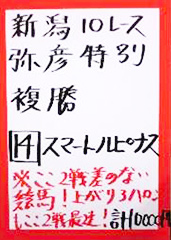 新潟10レース
弥彦特別
複勝
14 スマートルピナス
※ここ2戦差のない
競馬!上がり3ハロン
もここ2戦最速!計10000円